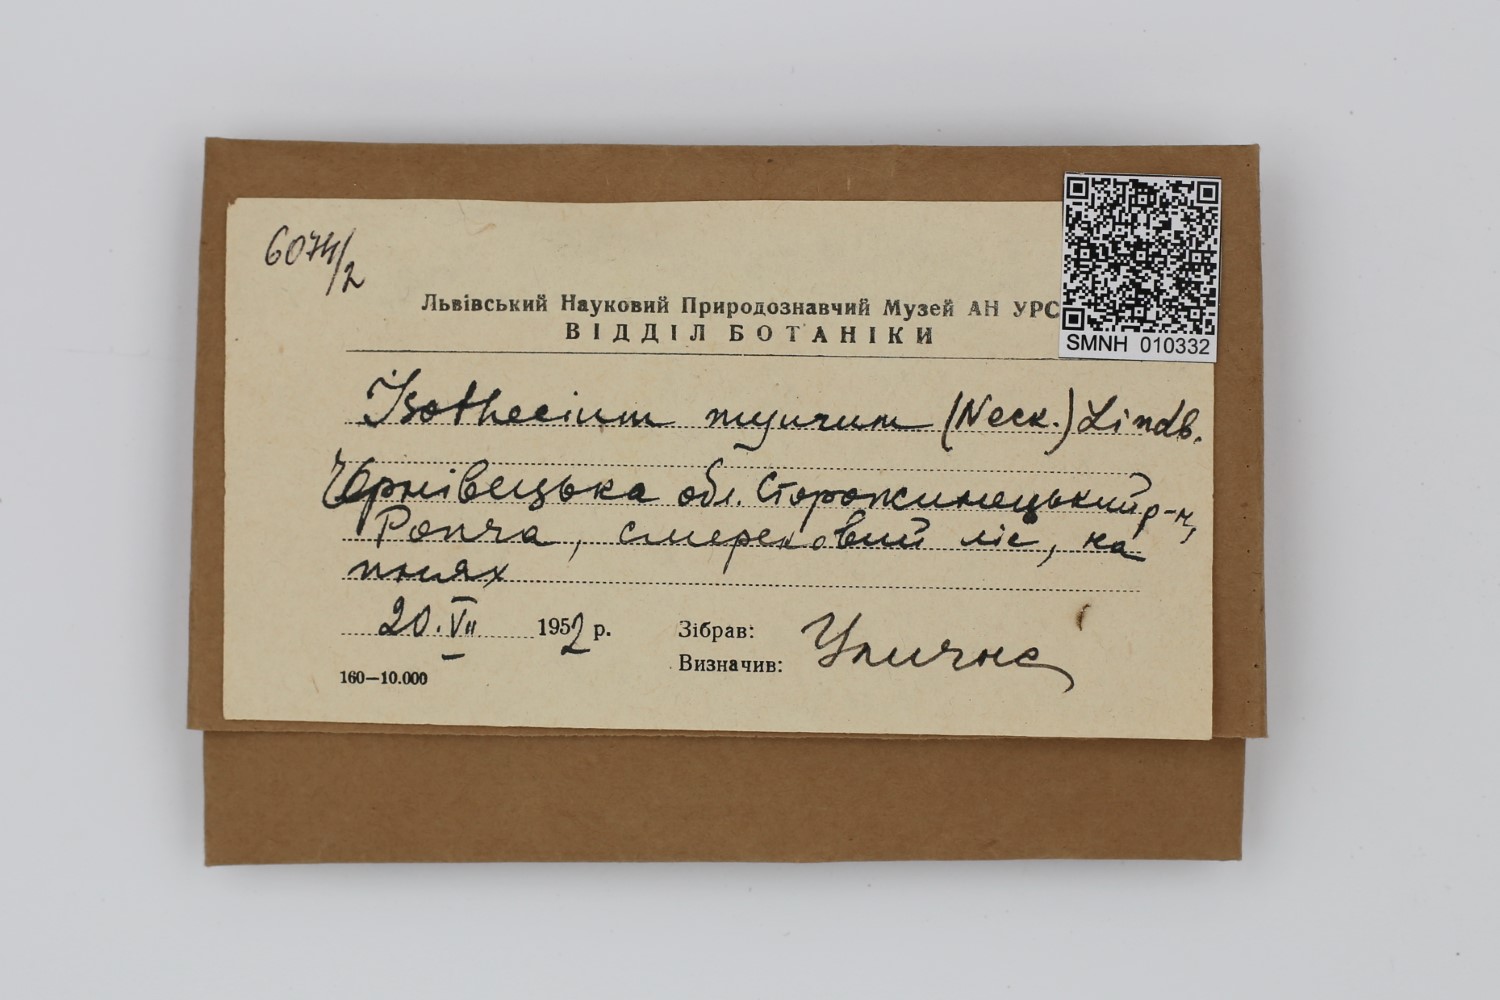 6074/2
Львівський Науковий Природознавчий Музей АН УРС
ВІДДІЛ БОТАНІКИ
SMNH 010332
Isothecium myurum (Neck.) Lindb.
Чернівецька обл. Сторожинецький р-н,
Ропча, смерековий ліс, на
пнях
20.VII 1952 р.
Зібрав: Улична
Визначив:
160—10.000